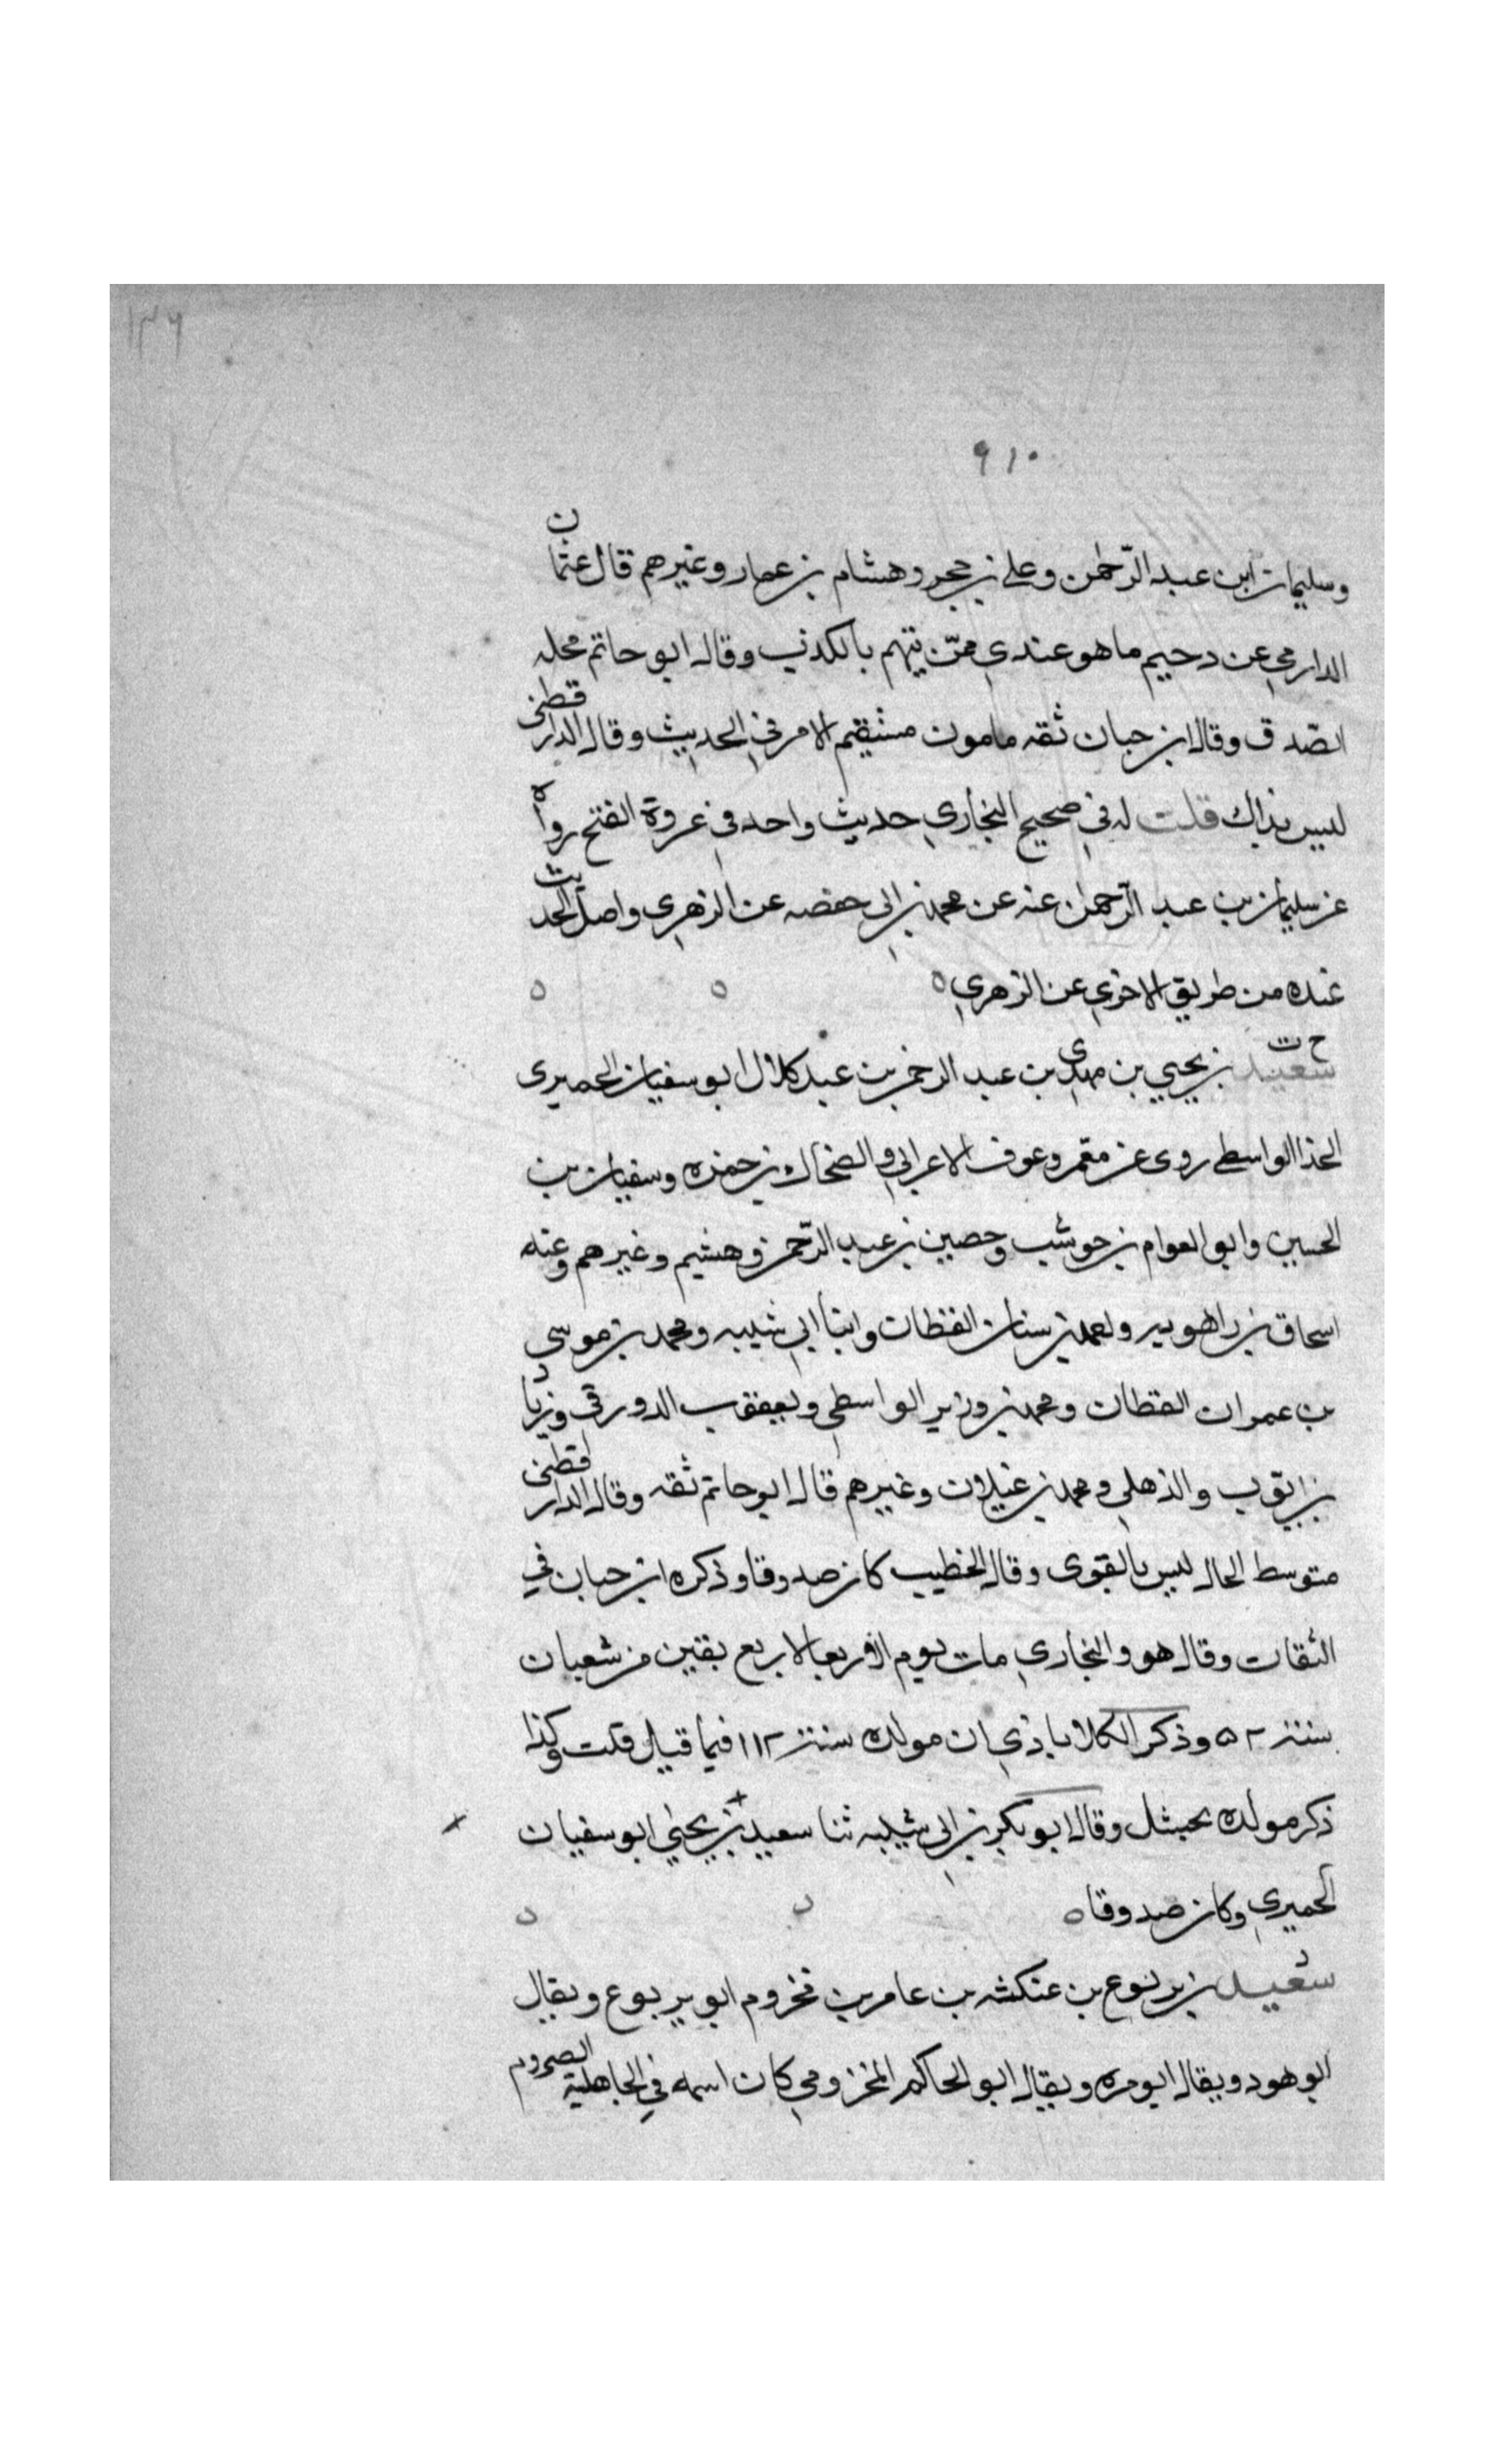 ١٣٦
٩١٠
وسليمان ابن عبد الرّحمن وعلي بن حجر وهشام بن عمار وغيرهم قال عثمان
الدارمي عن دحيم ما هو عندي ممّن يتهم بالكذب وقال ابو حاتم محله
الصّدق وقال ابن حبان ثقه مامون مستقيم الامر في الحديث وقال الدارقطني
ليس بذاك قلت له في صحيح البخاري حديث واحد في غزوة الفتح رواه
عن سليمان بن عبد الرّحمن عنه عن محمد بن ابي حفصه عن الزهري واصل الحديث
عنده من طريق الاخرى عن الزهري ه
خ ت
سعيد بن يحيى بن مهدي بن عبد الرحمن بن عبد كلال ابو سفيان الحميرى
الحذا الواسطي روى عن معمر وعوف الاعرابي والضحاك بن حمزه وسفيان بن
الحسين وابو العوام بن حوشب وحصين بن عبد الرّحمن وهشيم وغيرهم وعنه
اسحاق بن راهويه واحمد بن سنان القطان وابنا ابي شيبه ومحمد بن موسى
بن عمران القطان ومحمد بن وزير الواسطي ويعقوب الدورقي وزياد
بن ايوب والذهلي ومحمد بن غيلان وغيرهم قال ابو حاتم ثقه وقال الدارقطني
متوسط الحال ليس بالقوى وقال الخطيب كان صدوقا وذكره ابن حبان في
الثقات وقال هو والبخاري مات يوم الاربعا لاربع بقين من شعبان
سنة ٥٢ وذكر الكلاباذي ان مولده سنة ١١٢ فيما قيل قلت وكذا
ذكر مولده بحشل وقال ابو بكر بن ابي شيبه ثنا سعيد بن يحيى ابو سفيان
الحميري وكان صدوقا ه
د
سعيد بن يربوع بن عنكشه بن عامر بن مخزوم ابو يربوع ويقال
ابو هود ويقال ابو مره ويقال ابو الحاكم المخزومي كان اسمه في الجاهلية الصروم